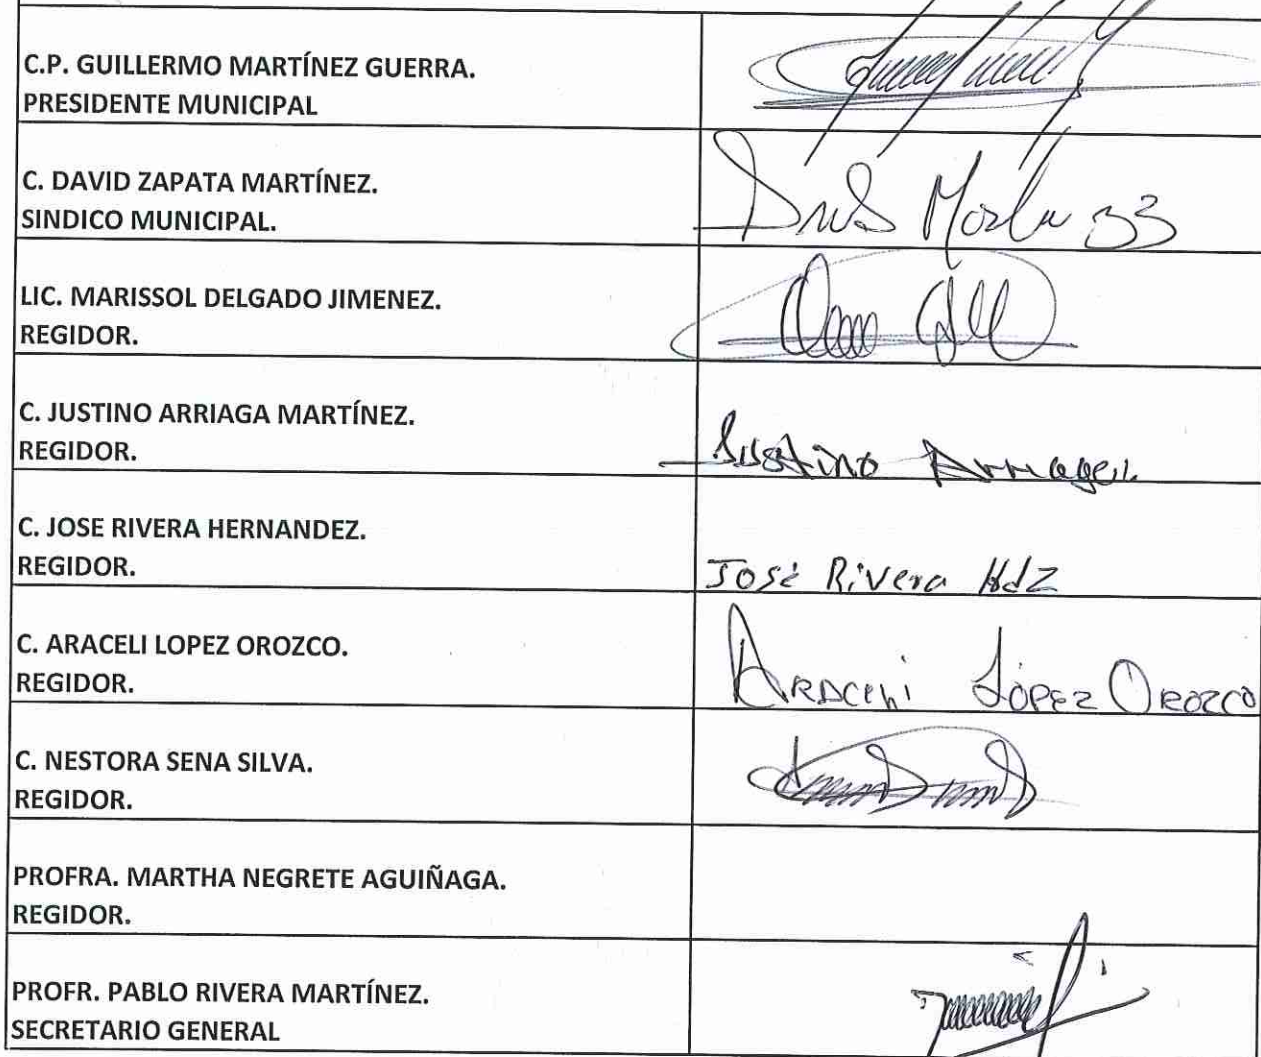 C.P. GUILLERMO MARTÍNEZ GUERRA.
PRESIDENTE MUNICIPAL
C. DAVID ZAPATA MARTÍNEZ.
SINDICO MUNICIPAL.
LIC. MARISSOL DELGADO JIMENEZ.
REGIDOR.
C. JUSTINO ARRIAGA MARTÍNEZ.
REGIDOR.
Justino Arriaga
C. JOSE RIVERA HERNANDEZ.
REGIDOR.
José Rivera Hdz
C. ARACELI LOPEZ OROZCO.
REGIDOR.
ARACELI LÓPEZ OROZCO
C. NESTORA SENA SILVA.
REGIDOR.
PROFRA. MARTHA NEGRETE AGUIÑAGA.
REGIDOR.
PROFR. PABLO RIVERA MARTÍNEZ.
SECRETARIO GENERAL